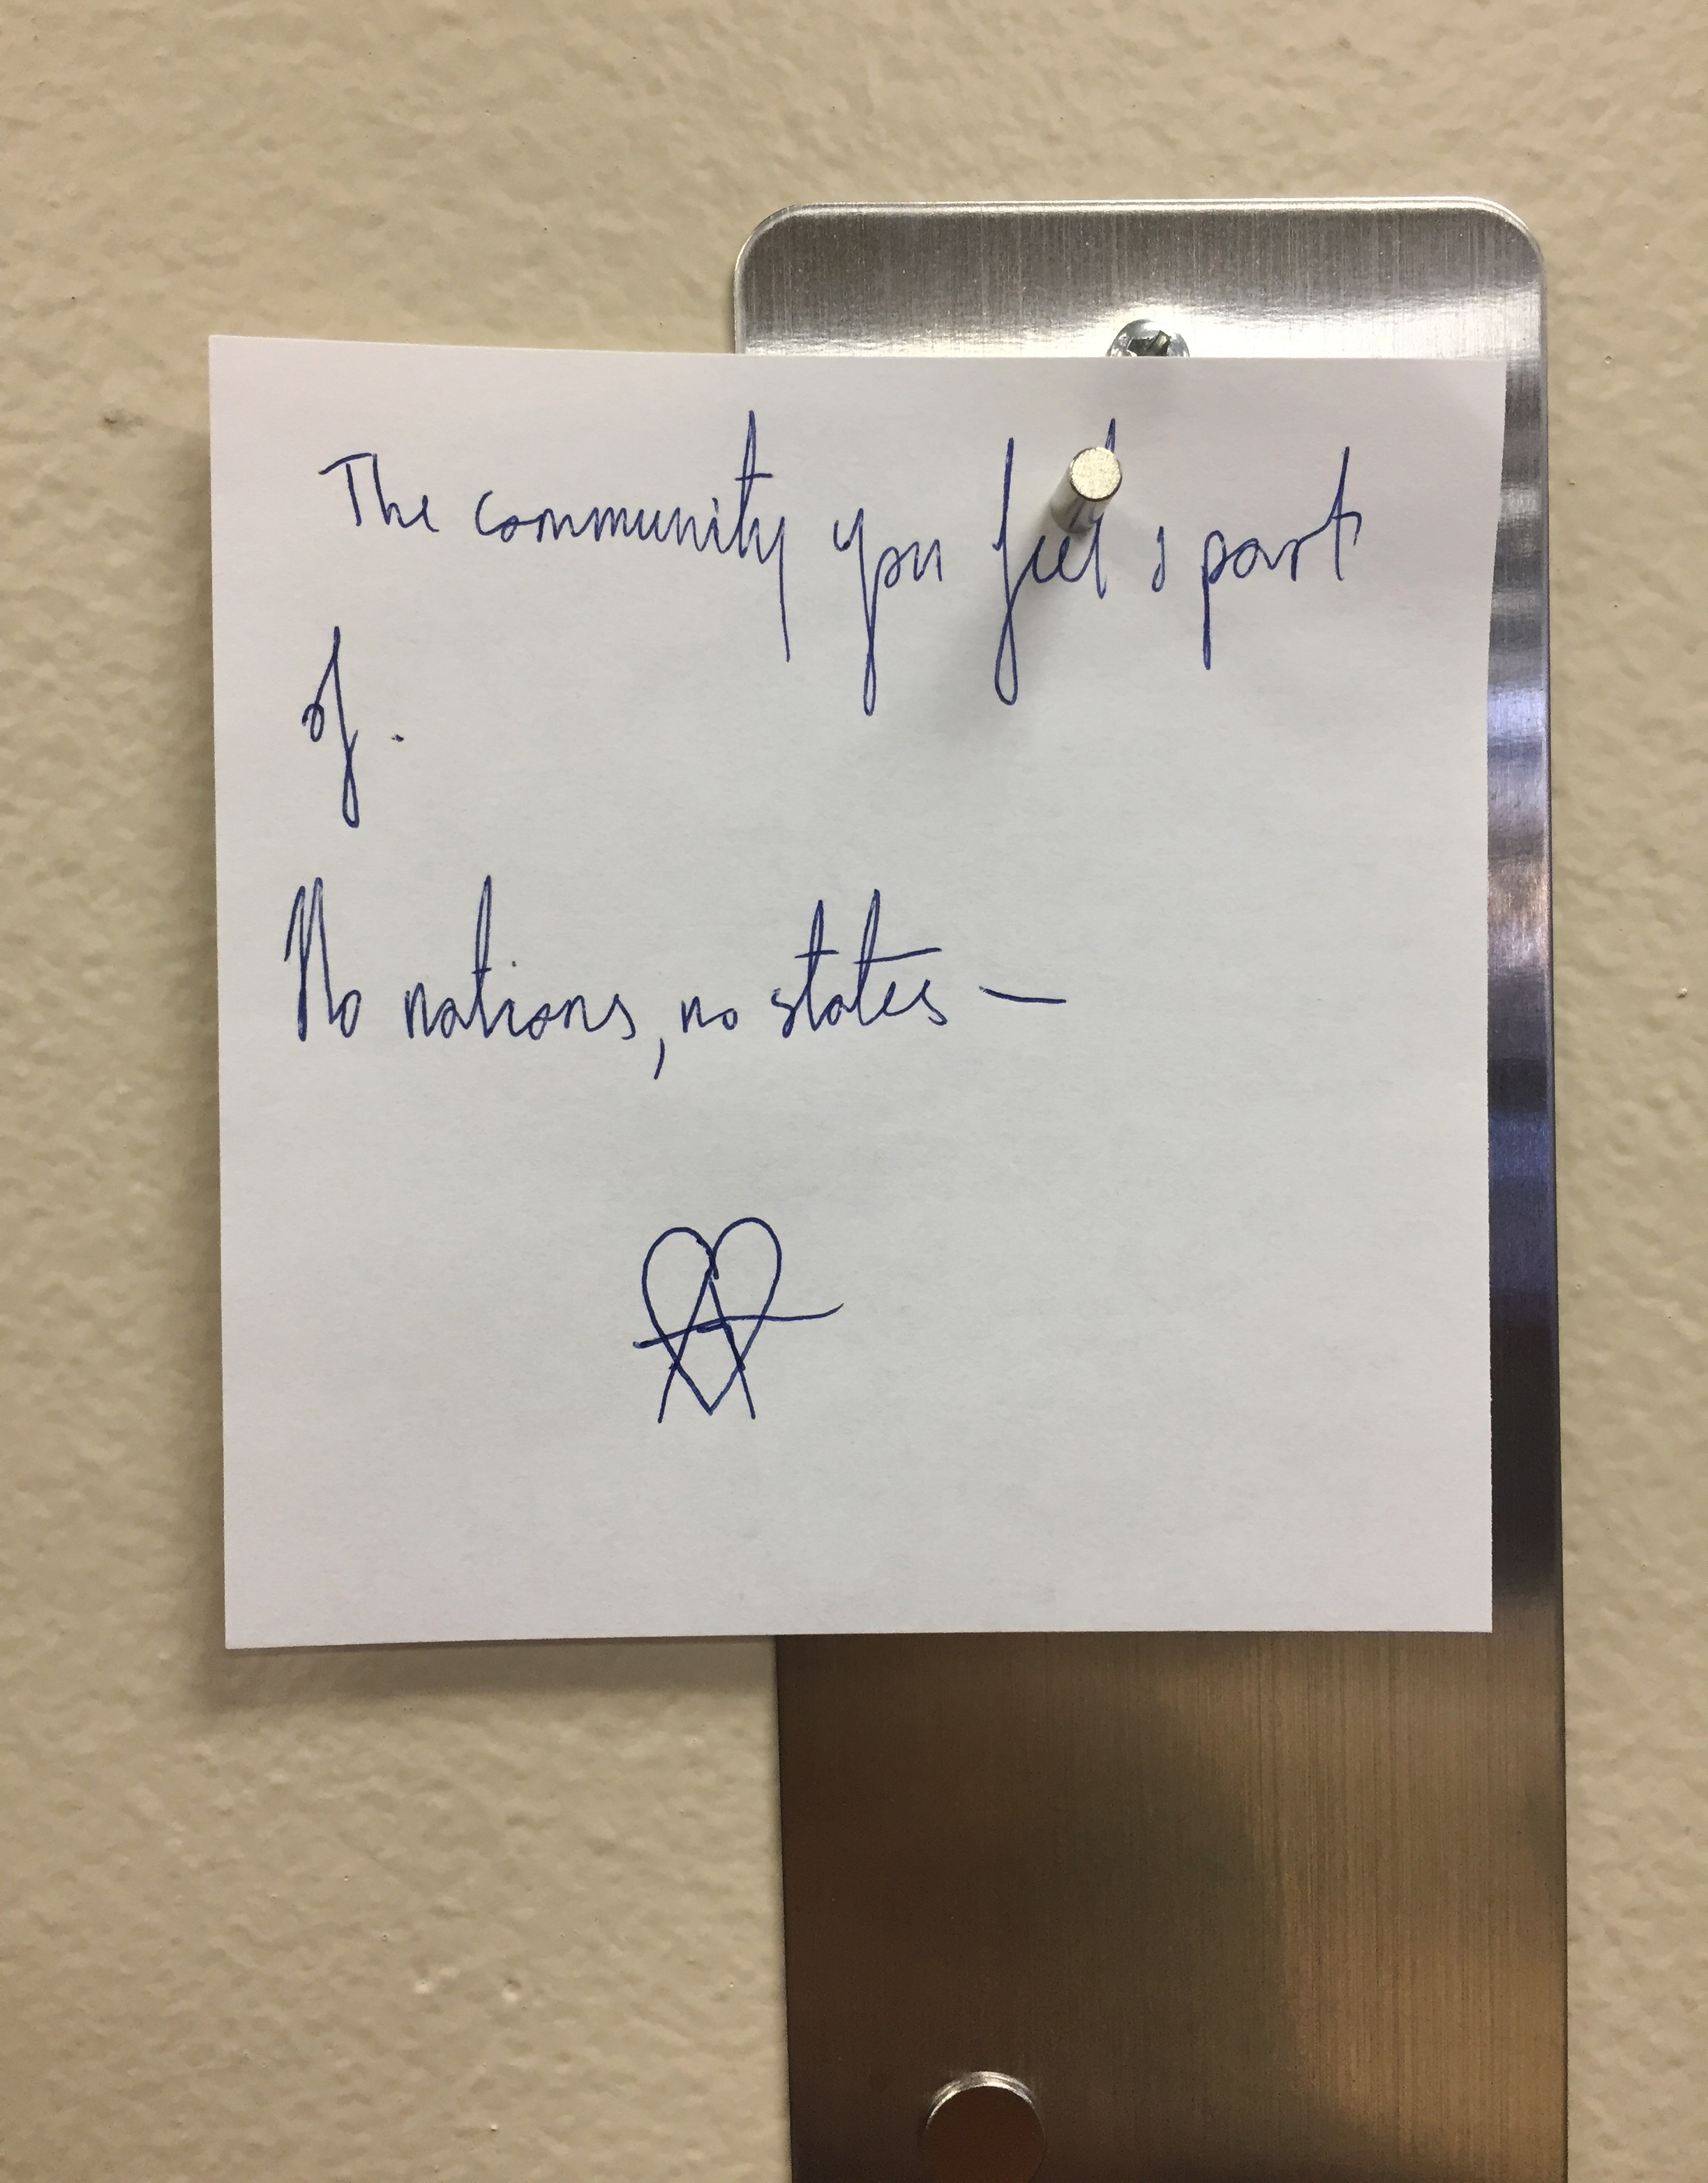 The community you feel a part
of.
No nations, no states —